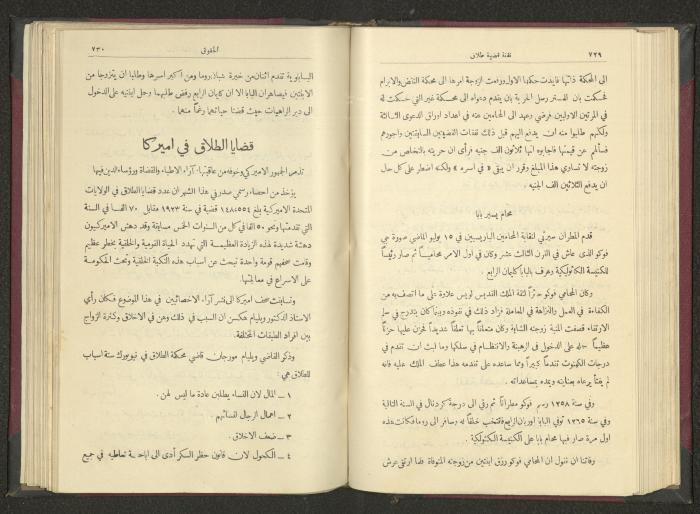 ٧٢٩ نفقة قضية طلاق
الى المحكمة ذاتها فايدت حكمها الاول ورفعت الزوجة امرها الى محكمة النقض والابرام
فحكمت بان المستر رسل الحرية بان يقدم دعواه الى محكمة غير التي حكمت له
في المرتين الاوليين فرضي وعهد الى المحامين عنه في اعداد اوراق الدعوى الثالثة
ولكنهم طلبوا منه ان يدفع اليهم قبل ذلك نفقات القضيتين السابقتين واجورهم
فسألهم عن قيمتها فاجابوه انها ثلاثون الف جنيه فرأى ان حريته بالتخلص من
زوجته لا تساوي هذا المبلغ وقرر ان يبقى « في اسره » ولكنه اضطر على كل حال
ان يدفع الثلاثين الف الجنيه .
محام يصير بابا
قدم المطران سيرتي لنقابة المحامين الباريسيين في ١٥ يوليو الماضي صورة جي
فوكو الذي عاش في القرن الثالث عشر وكان في اول الامر محامياً ثم صار رئيساً
للكنيسة الكاثوليكية وعرف بالبابا كليمان الرابع .
وكان المحامي فوكو حائزاً ثقة الملك القديس لويس علاوة على ما اتصف به من
الكفاءة في العمل والنزاهة في المعاملة فزاد ذلك في نفوذه وبينما كان يتدرج في سلم
الارتقاء قصفت المنية زوجته الشابة وكان متعلقاً بها تعلقاً شديداً فحزن عليها حزناً
عظيماً حمله على الدخول في الرهبنة والانتظام في سلكها وما لبث ان تقدم في
درجات الكهنوت تقدماً كبيراً ومما ساعده على تقدمه هذا عطف الملك عليه فانه
لم يفتأ يرعاه بعنايته ويمده بمساعداته .
وفي سنة ١٢٥٨ رسم فوكو مطراناً ثم رقي الى درجة كردنال في السنة التالية
وفي سنة ١٢٦٥ توفي البابا اوربان الرابع فانتخب خلفاً له وسافر الى روما فكانت هذه
اول مرة صار فيها محام بابا على الكنيسة الكثوليكية .
وفاتنا ان نقول ان المحامي فوكو رزق ابنتين من زوجته المتوفاة فلما ارتقى عرش
الحقوق ٧٣٠
البابوية تقدم اثنان من خيرة شبان روما ومن اكبر اسرها وطلبا ان يتزوجا من
الابنتين فيصاهران البابا الا ان كليمان الرابع رفض طلبهما وحمل ابنتيه على الدخول
الى دير الراهبات حيث قضتا حياتهما رغماً منهما .
قضايا الطلاق في اميركا
تذمر الجمهور الاميركي وخوفه من عاقبتها . آراء الاطباء والقضاة ورؤساء الدين فيها
يؤخذ من احصاء رسمي صدر في هذا الشهر ان عدد قضايا الطلاق في الولايات
المتحدة الاميركية بلغ ١٤٨،٥٥٤ قضية في سنة ١٩٢٣ مقابل ٧٠ الفاً في السنة
التي تقدمتها ونحو ٥٠ الفاً في كل من السنوات الخمس سابقة وقد دهش الاميركيون
دهشة شديدة لهذه الزيادة العظيمة التي تهدد الحياة القومية والخلقية بخطر عظيم
وقامت صحفهم قومة واحدة تبحث عن اسباب هذه النكبة الخلقية وتحث الحكومة
على الاسراع في معالجتها .
وتسابقت صحف اميركا الى نشر آراء الاخصائيين في هذا الموضوع فكان رأي
الاستاذ الدكتور ويليام هكسن ان السبب في ذلك وهن في الاخلاق وكثرة الزواج
بين افراد الطبقات المختلفة .
وذكر القاضي ويليام مورجان قاضي محكمة الطلاق في نيويورك ستة اسباب
للطلاق هي :
١ ــ المال لان النساء يطلبن عادة ما ليس لهن .
٢ ــ اهمال الرجال لنسائهم .
٣ ــ ضعف الاخلاق .
٤ ــ الكحول لان قانون حظر السكر أدى الى اباحة تعاطيه في جميع